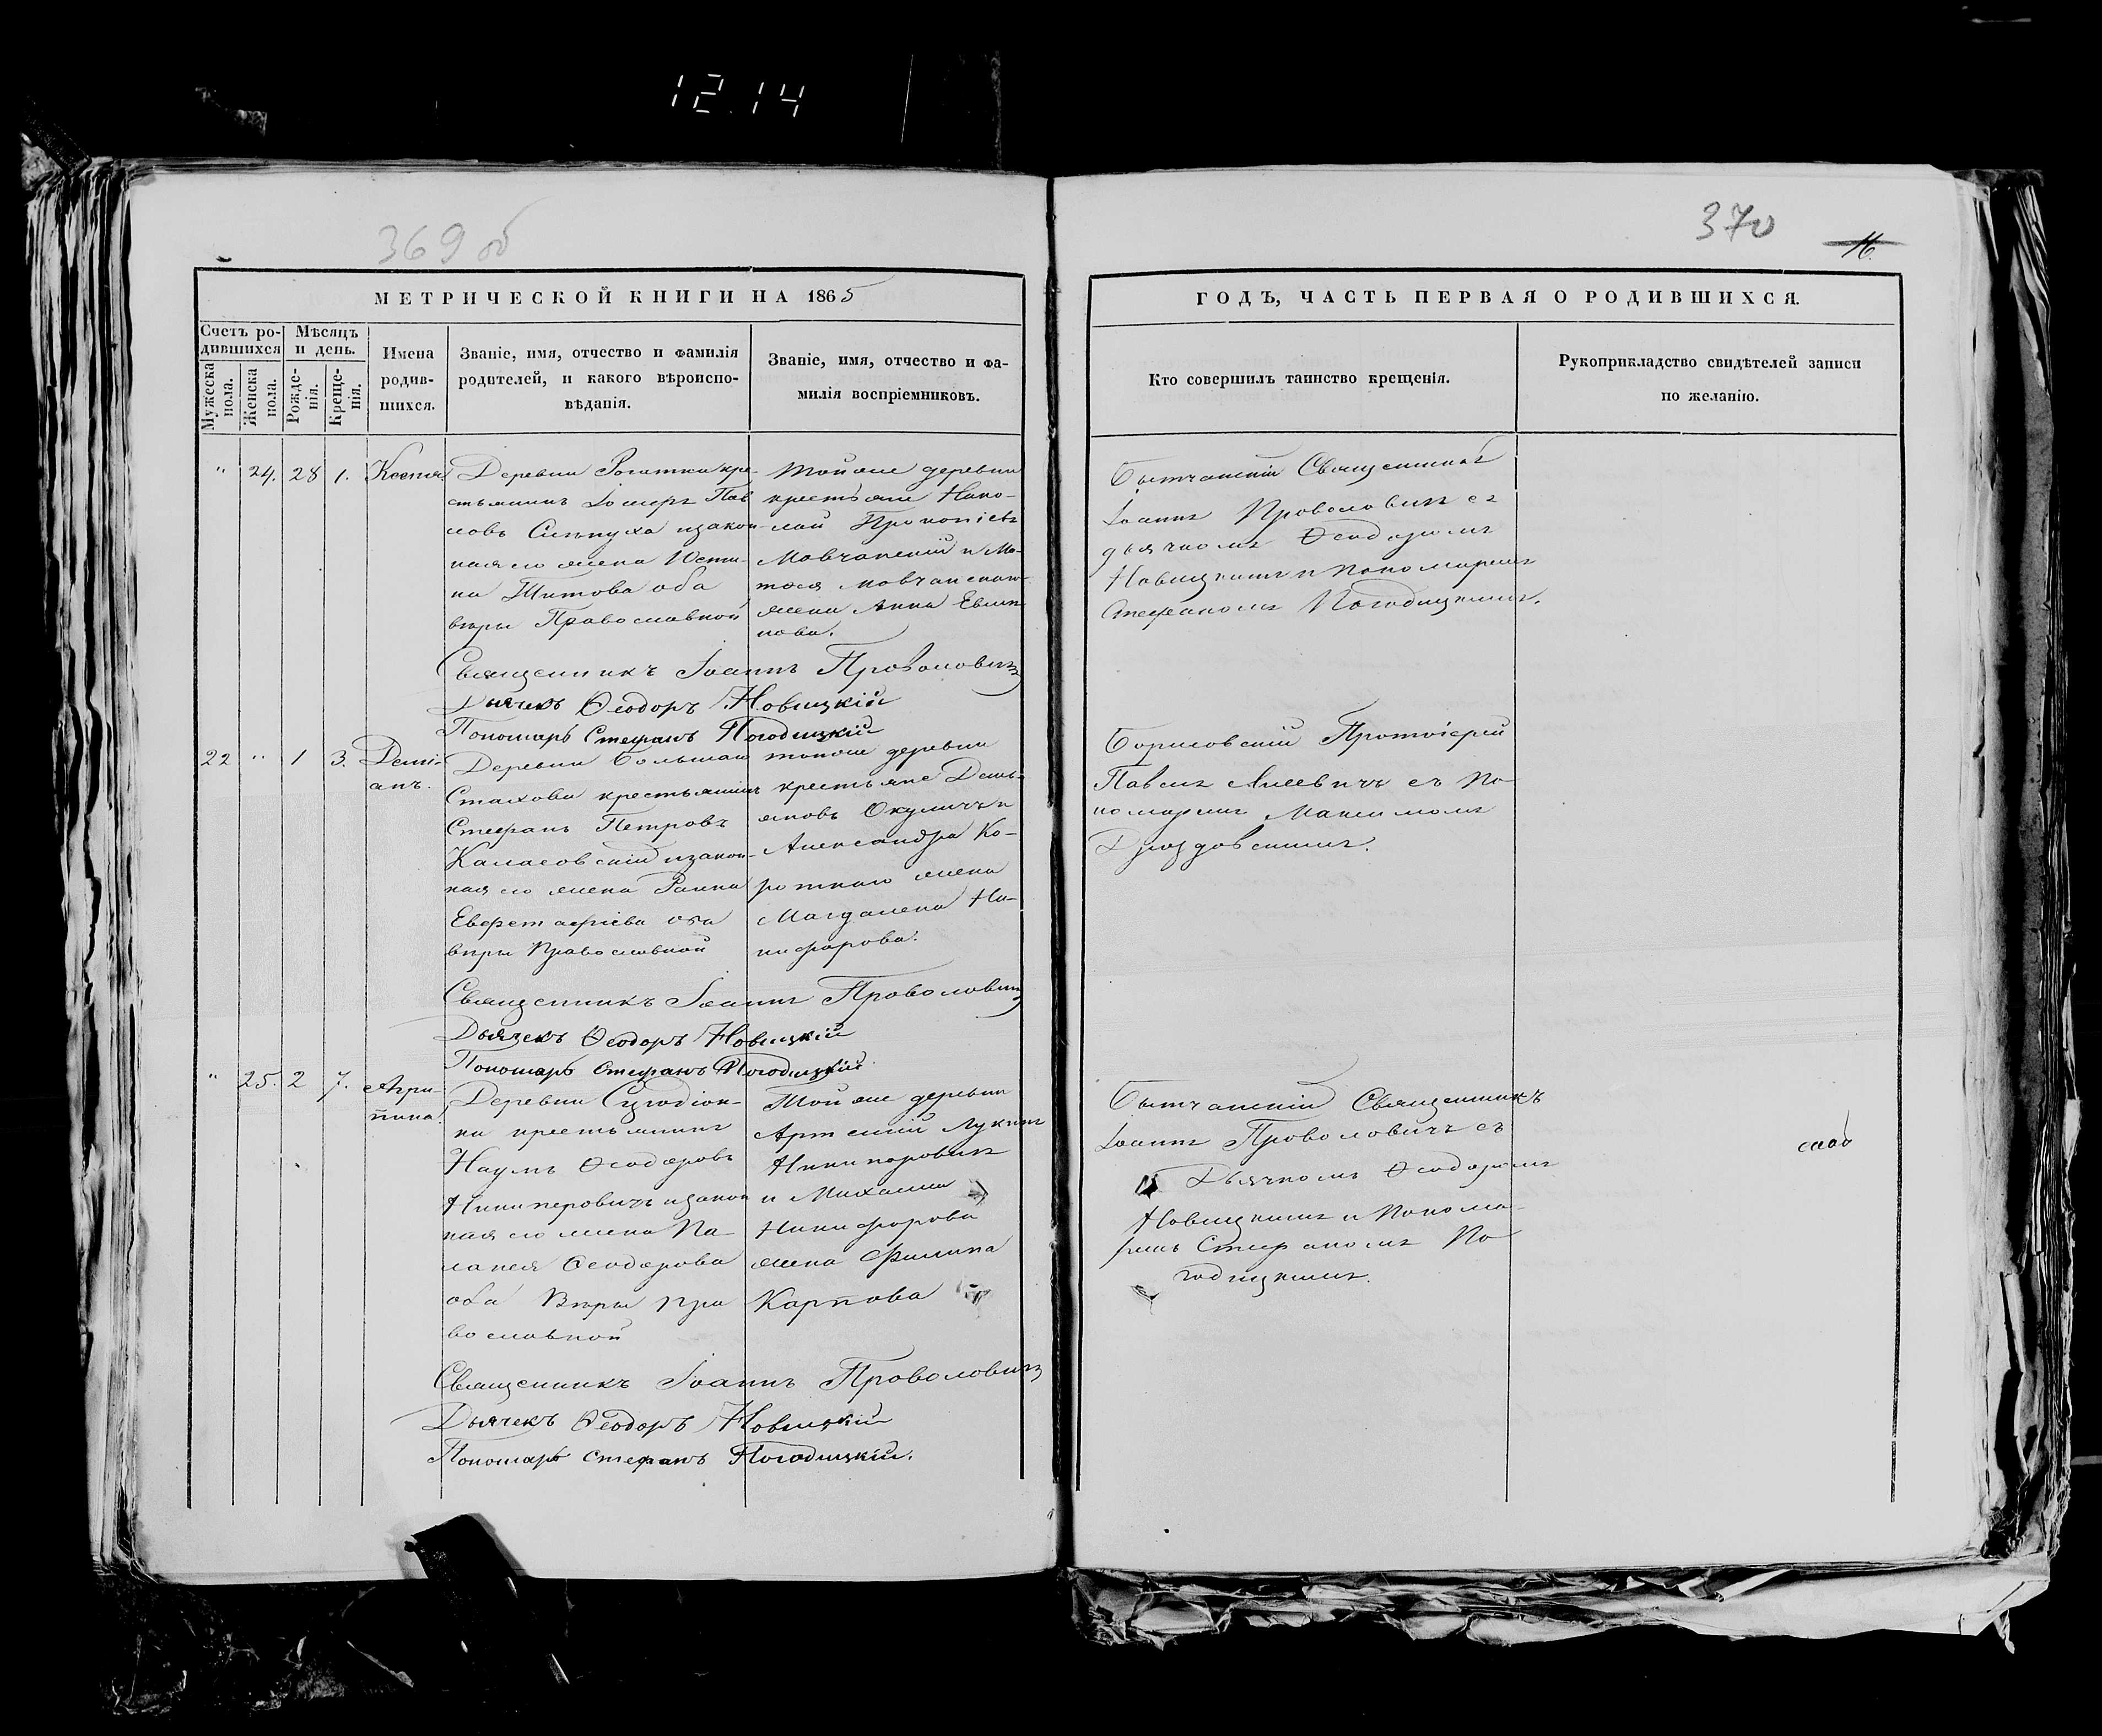 12.14
369 об
370
16.
МЕТРИЧЕСКОЙ КНИГИ НА 1865
ГОДЪ, ЧАСТЬ ПЕРВАЯ О РОДИВШИХСЯ.
Счетъ ро-
дившихся
Мужеска
пола.
Женска
пола.
Мѣсяцъ
и день.
Рожде-
нія.
Креще-
нія.
Имена
родив-
шихся.
Званіе, имя, отчество и фамилія
родителей, и какого вѣроиспо-
вѣданія.
Званіе, имя, отчество и фа-
милія воспріемниковъ.
Кто совершилъ таинство крещенія.
Рукоприкладство свидѣтелей записи
по желанію.
" 24. 28 1. Ксенія
Деревни Рогатки кре-
стьянинъ Павловъ
законная его жена Юсти-
на Титова оба
вѣры Православной
Тойже деревни
крестьяне Нико-
лай Прокопіевъ
Мовчанскій и
Мовчанскаго
жена Анна
Бытчанскій Священникъ
Іоаннъ Проволовичъ съ
дьячкомъ Ѳеодоромъ
Новицкимъ и пономаремъ
Стефаномъ Погодицкимъ.
Священникъ Іоаннъ Проволовичъ
Дьячекъ Ѳеодоръ Новицкій
Пономарь Стефанъ Погодицкій
22 " 1 3. Деми-
анъ.
Деревни Большаго
Стахова крестьянинъ
Стефанъ Петровъ
законная
его жена
Евстафіева оба
вѣры Православной
тойже деревни
крестьяне Демь-
яновъ Окуличъ и
Александра Ко-
роткаго жена
Магдалена Ни-
кифорова.
Борисовскій Протоіерей
Павелъ съ по-
номаремъ Максимомъ
Дроздовскимъ.
Священникъ Іоаннъ Проволовичъ
Дьячекъ Ѳеодоръ Новицкій
Пономарь Стефанъ Погодицкій.
" 25. 2 7. Агри-
пина
Деревни
крестьянинъ
Наумъ Ѳеодоровъ
Никиперовичъ законная
его жена Па-
лагея Ѳеодорова
оба Вѣры пра
вославной
Тойже деревни
Артемій Лукинъ
Никипоровичъ
и Михаила
Никифорова
жена Филипа
Карпова
Бытчанскій Священникъ
Іоаннъ Проволовичъ съ
Дьячкомъ Ѳеодоромъ
Новицкимъ и Понома-
ремъ Стефаномъ По
годицкимъ.
Священникъ Іоаннъ Проволовичъ
Дьячекъ Ѳеодоръ Новицкій
Пономарь Стефанъ Погодицкій.